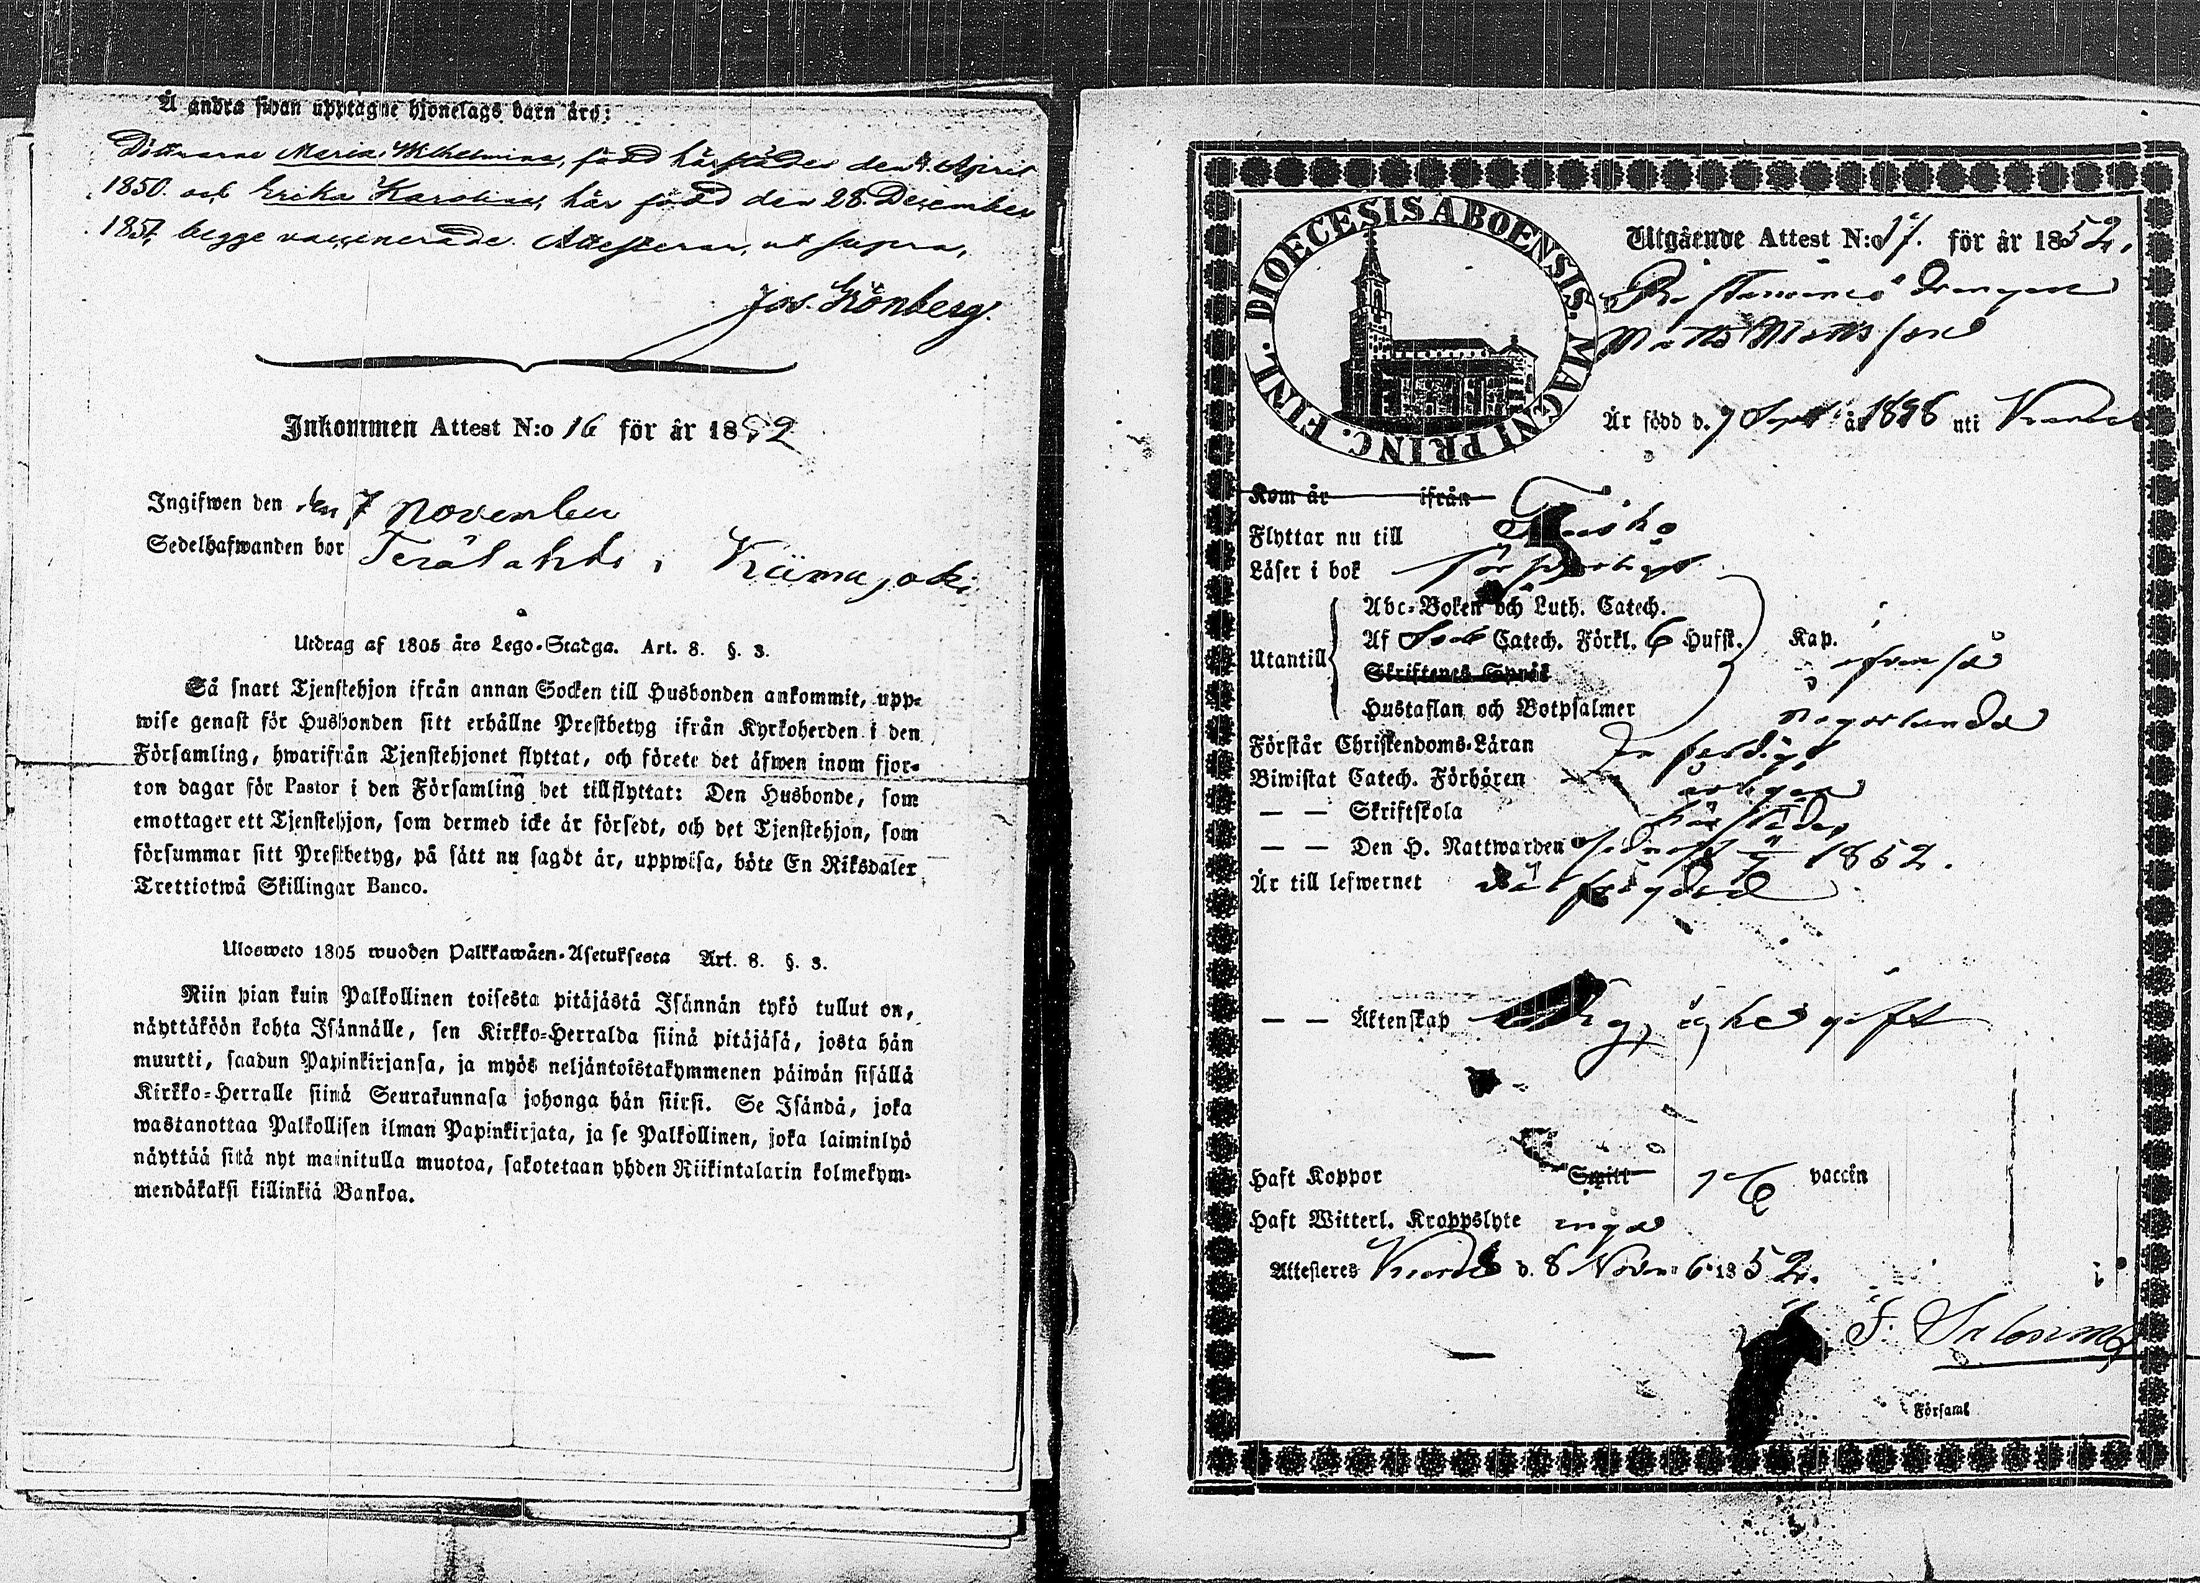 Å andra sidan upptagne hjonelags barn äro:
Döttrarne Maria Wilhelmina, född härstädes den 4. April
1850. och Erika Karolina, här född den 28. December
1851, begge vaccinerade. Attesterar, ut supra,
Jos. Grönberg.
Inkommen Attest N:o 16 för år 1852
Ingifwen den den 7 November
Sedelhafwanden bor Terälahti i Kiimajoki
Utdrag af 1805 års Lego-Stadga. Art. 8. §. 3.
Så snart Tjenstehjon ifrån annan Socken till Husbonden ankommit, upp-
wise genast för Husbonden sitt erhållne Prestbetyg ifrån Kyrkoherden i den
Församling, hwarifrån Tjenstehjonet flyttat, och förete det äfwen inom fjor-
ton dagar för Pastor i den Församling det tillflyttat: Den Husbonde, som
emottager ett Tjenstehjon, som dermed icke är försedt, och det Tjenstehjon, som
försummar sitt Prestbetyg, på sätt nu sagdt är, uppwisa, böte En Riksdaler
Trettiotwå Skillingar Banco.
Ulosweto 1805 wuoden Palkkawäen-Asetuksesta Art. 8. §. 3.
Niin pian kuin Palkollinen toisesta pitäjästä Isännän tykö tullut on,
näyttäköön kohta Isännälle, sen Kirkko-Herralda siinä pitäjäsä, josta hän
muutti, saadun Papinkirjansa, ja myös neljäntoistakymmenen päiwän sisällä
Kirkko-Herralle siinä Seurakunnasa johonga hän siirsi. Se Isändä, joka
wastanottaa Palkollisen ilman Papinkirjata, ja se Palkollinen, joka laiminlyö
näyttää sitä nyt mainitulla muotoa, sakotetaan yhden Riikintalarin kolmekym-
mendäkaksi killinkiä Bankoa.
DIOECESIS ABOENSIS. MAGNI PRINC. FINL.
Utgående Attest N:o 17. för år 1852.
Drängen
Matts Mattsson
Är född d. 7 Sept år 1828 uti
Kom år ifrån
Flyttar nu till
Läser i bok försvarligt
Abc-Boken och Luth. Catech.
Utantill Af Catech. Förkl. 6 Hufst. Kap.
Skriftenes Språk äfven så
Hustaflan och Botpsalmer någorlunda
Förstår Christendoms-Läran
Biwistat Catech. Förhören årligen
— — Skriftskola härstädes
— — Den H. Nattwarden sednast 1852.
Är till lefwernet välfrägdad
— — Äktenskap ledig, icke gift
Haft Koppor Smitt vaccin
Haft Witterl. Kroppslyte inga
Attesteres d. 8 Nov. 1852.
Församl